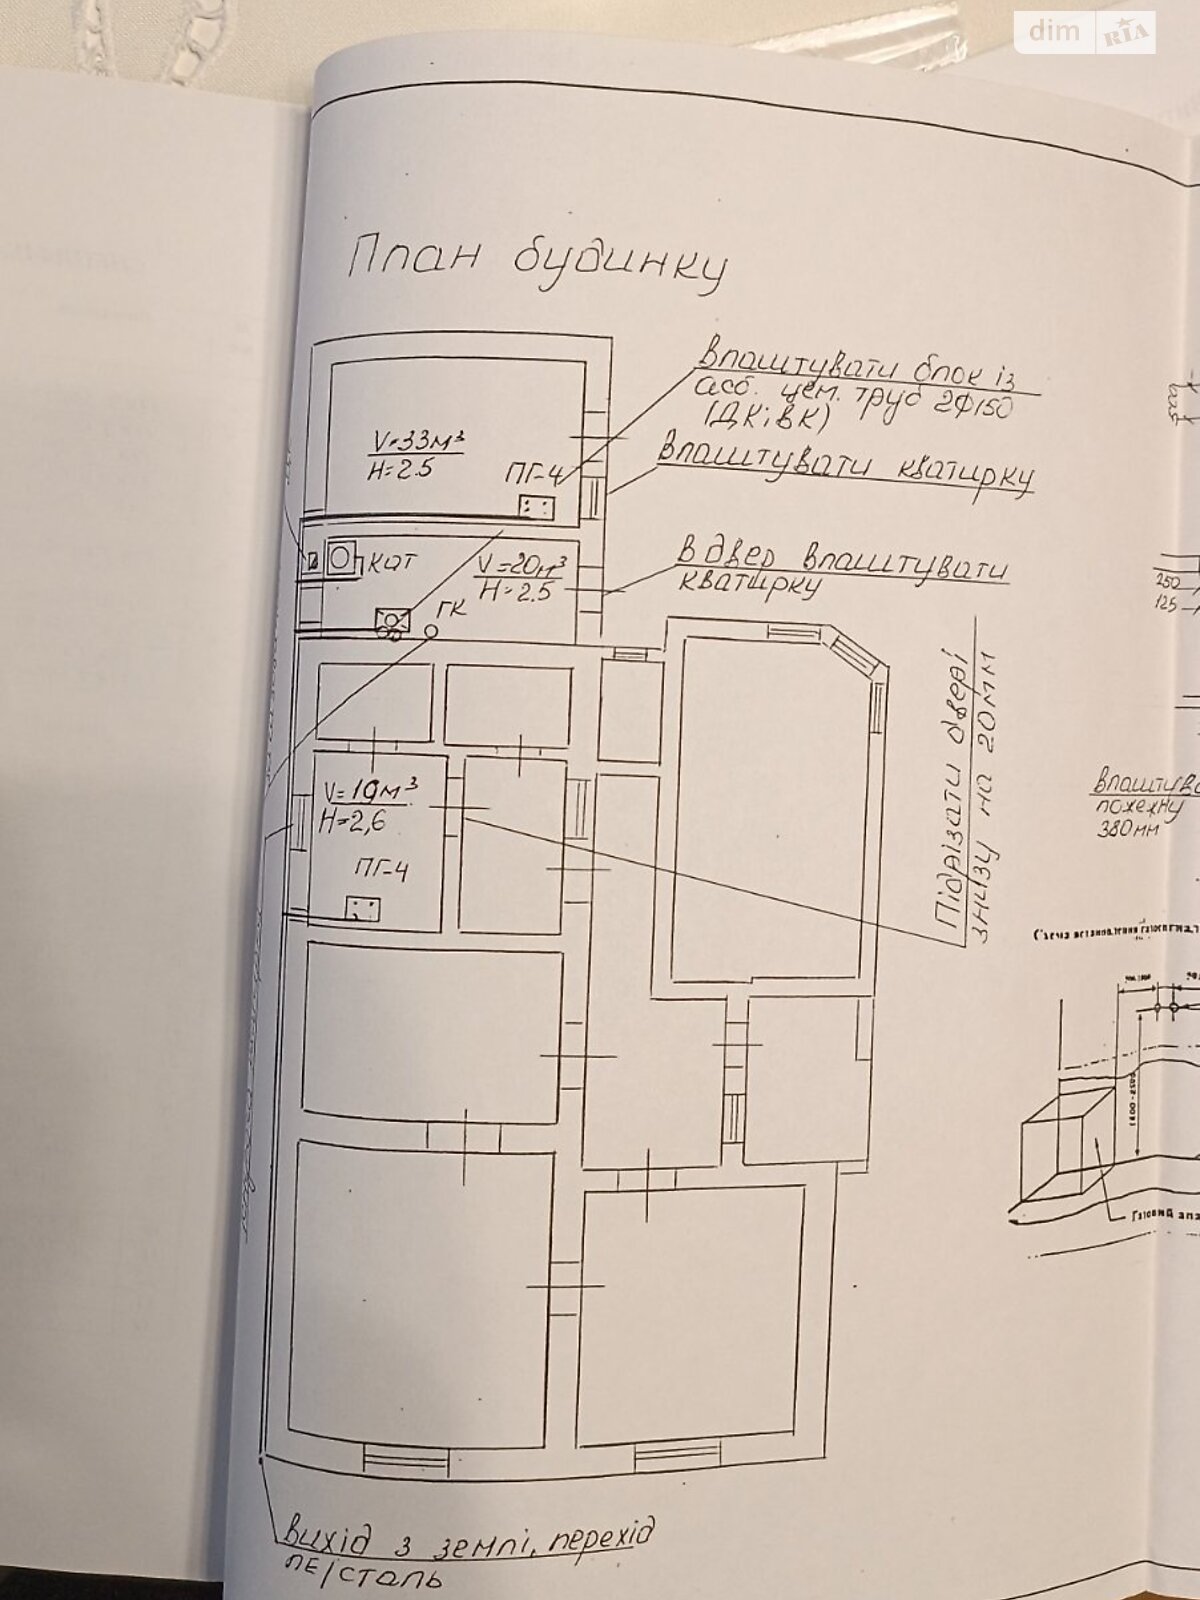 dim RIA
План будинку
Влаштувати блок із
асб. цем. труб 2Ф150
(ДК; ВК)
Влаштувати кватирку
V=33м³
H=2.5
ПГ-4
КОТ
V=20м³
H=2.5
В двер влаштувати
кватирку
ГК
250
125
Підрізати двері
знизу на 20мм
V=19м³
H=2,6
ПГ-4
380мм
Схема встановлення
Газовий апа
Вихід з землі, перехід
ПЕ/сталь